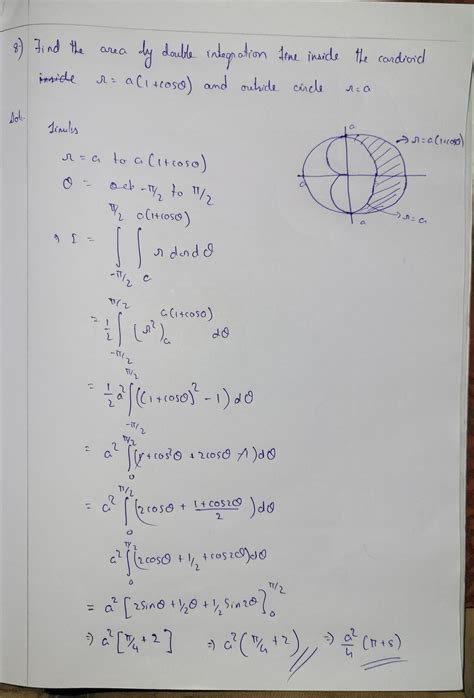 8) Find the area by double integration line inside the cardioid
inside r = a(1+cosθ) and outside circle r=a
Sol-
limits
r = a to a(1+cosθ)
θ = -π/2 to π/2
a
→ r = a(1+cosθ)
a
→ r = a
a
→ I = ∫_{-π/2}^{π/2} ∫_{a}^{a(1+cosθ)} r dr dθ
= 1/2 ∫_{-π/2}^{π/2} (r²)_{a}^{a(1+cosθ)} dθ
= 1/2 a² ∫_{-π/2}^{π/2} ((1+cosθ)² - 1) dθ
= a² ∫_{0}^{π/2} (1 + cos²θ + 2cosθ - 1) dθ
= a² ∫_{0}^{π/2} (2cosθ + (1+cos2θ)/2) dθ
a² ∫_{0}^{π/2} (2cosθ + 1/2 + cos2θ) dθ
= a² [2sinθ + 1/2 θ + 1/2 sin2θ]_{0}^{π/2}
⇒ a² [π/4 + 2] ⇒ a² (π/4 + 2) ⇒ a²/4 (π + 8)